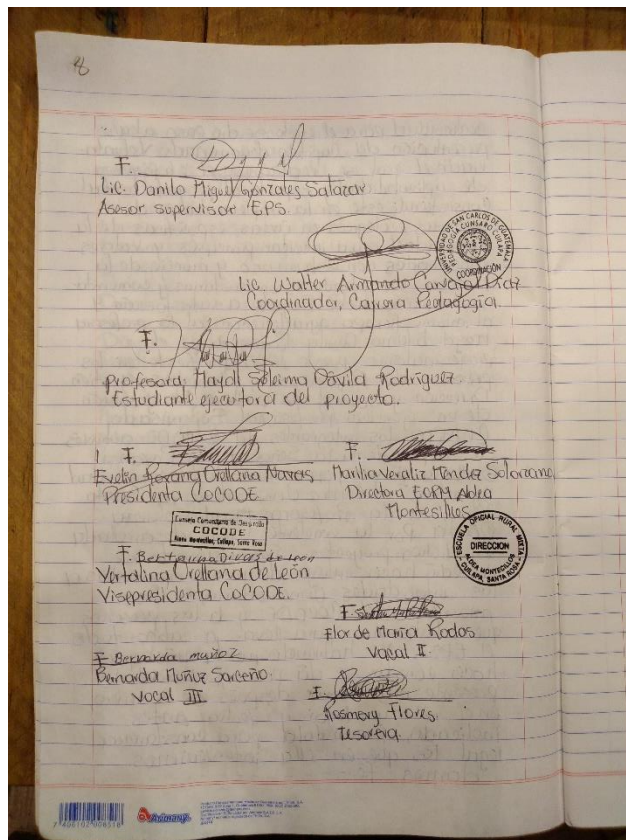 8
F.
Lic. Danilo Miguel Gonzales Salazar
Asesor supervisor EPS.
UNIVERSIDAD DE SAN CARLOS DE GUATEMALA
PEDAGOGIA CUNSARO CUILAPA
COORDINACIÓN
Lic. Walter Armando Carvajal Díaz
Coordinador, Carrera Pedagogía.
F.
profesora: Maydi Seleima Dávila Rodríguez
Estudiante ejecutora del proyecto.
F.
F.
Evelin Roxana Orellana Navas
Marilia Veraliz Méndez Solorzano
Presidenta COCODE
Directora EORM Aldea
Montesillos
Consejo Comunitario de Desarrollo
COCODE
Aldea Montecillos, Cuilapa, Santa Rosa
ESCUELA OFICIAL RURAL MIXTA
DIRECCION
ALDEA MONTECILLOS
CUILAPA, SANTA ROSA
F. Bertalina Divas de León
Vertalina Orellana de León
Visepresidenta CoCODE.
F.
Flor de María Rodas
Vocal II
F Bernarda muñoz
Bernarda Muñuz Sarceño.
Vocal III
F.
Rosmery Flores.
Tesorera.